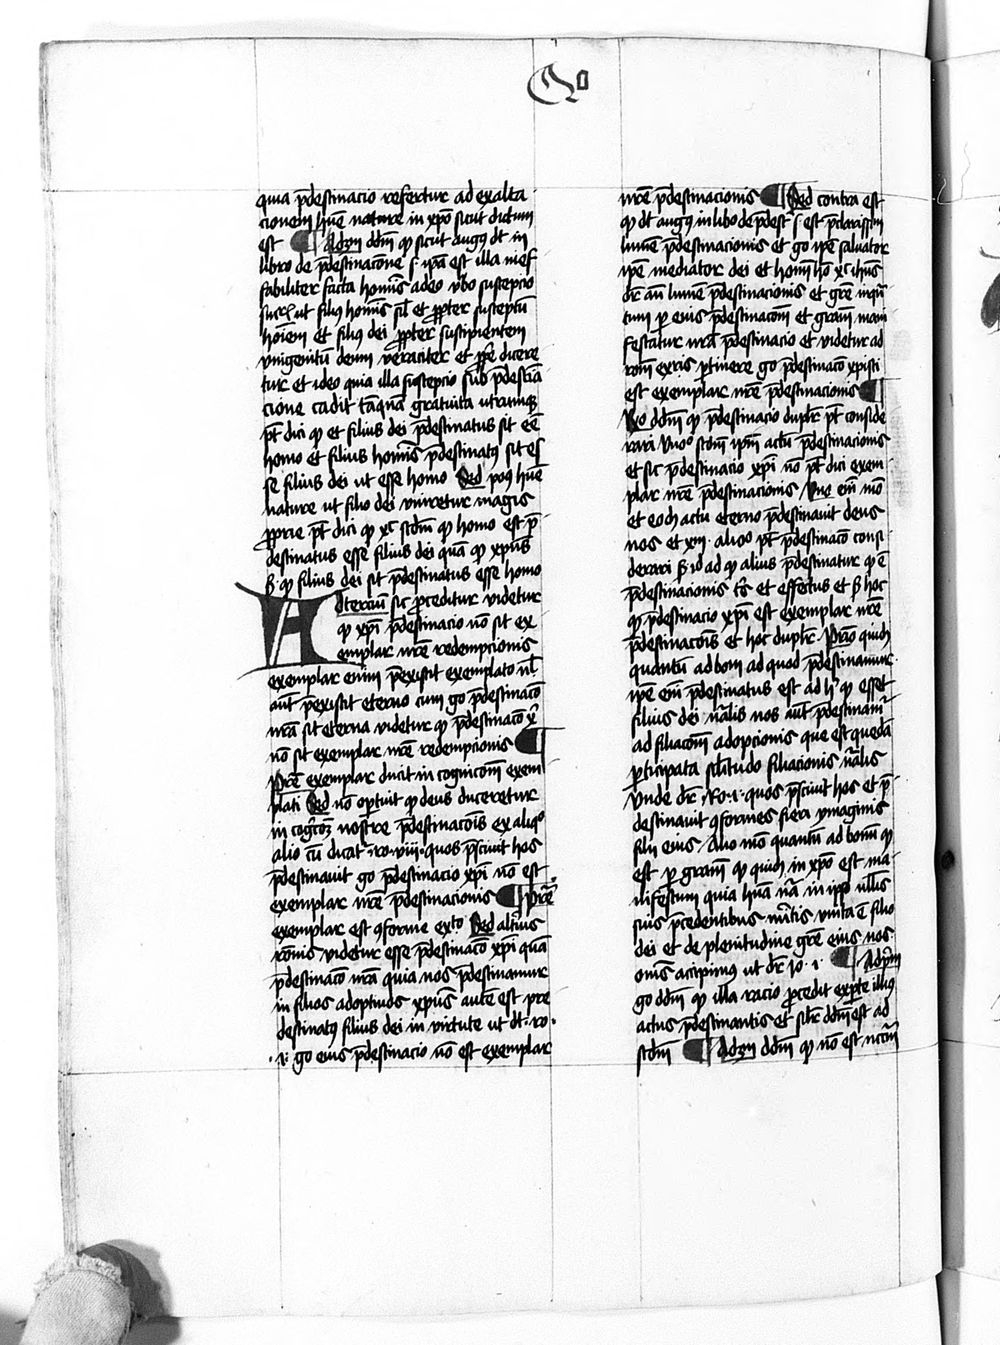 Qo
quia p̄destinacio refertur ad exalta
cionem hūe nature in xp̄o sicut dictum
est ¶ Ad 2m dd̄m qꝫ sicut augꝰ dt̄ in
libro de p̄destinacōne s̄ ip̄a est illa inef
fabiliter facta hominis a deo v̄bo suscepcio
ut filiꝰ hominis sil̄ et ꝓpter susceptū
hoīem et filiꝰ dei ꝓpter suscipientem
vnigenitū deum veraciter et ꝓp̄e dicere
tur et ideo quia illa suscepcio sub p̄destīa
cione cadit tāquā gratuita utrumqꝫ
pt̄ dici qꝫ et filius dei p̄destinatus sit eē
homo et filius hominis p̄destinatꝰ sit es
se filius dei ut esse homo Sed hūe
nature ut filio dei vniretur magis
ꝓprie pt̄ dici qꝫ xc̄ scd̄m qꝫ homo est p̄
destinatus esse filius dei quā qꝫ xp̄us
s̄ qꝫ filius dei sit p̄destinatus esse homo
Ad tercium sic proceditur videtur
qꝫ xp̄i p̄destinacio nō sit ex
emplar nr̄e redempcionis
exemplar enim p̄existit exemplato nl̄
aūt p̄existit eterno cum go p̄destinacō
nr̄a sit eterna videtur qꝫ p̄destinacō xi
nō sit exemplar nr̄e redempcionis ¶
Pret̄ exemplar ducit in cognicōm exem
plati Sed nō oportuit qꝫ deus duceretur
in cogicōꝫ nostre p̄destinacōis ex aliqo
alio cū dicat᷑ ro. viii. quos p̄sciuit hos
p̄destinauit go p̄destinacio xp̄i nō est
exemplar nr̄e p̄destinacionis ¶ Pret̄
exemplar est ꝯforme exto Sed altꝰius
rōnis videtur esse p̄destinacō xp̄i quā
p̄destinacō nr̄a quia nos p̄destinamur
in filios adoptiuos xp̄us autē est pre
destinatꝰ filius dei in virtute ut dt̄. ro.
.i. go eius p̄destinacio nō est exemplar
nr̄e p̄destinacionis ¶ Sed contra est
qꝫ dt̄ augꝰ in libo de p̄dest̄ s̄ est p̄clarissim
lumē p̄destinacionis et gr̄e ip̄e saluator
ip̄e mediator dei et homī hō xc̄ ihūs
dr̄ aūt lumē p̄destinacionis et gr̄e inqū
tum ꝑ eius p̄destinacōm et graciam mani
festatur nr̄a p̄destinacio et videtur ad
rōm exris ꝑtinere go p̄destinacō xpisti
est exemplar nr̄e p̄destinacionis ¶
Ro dd̄m qꝫ p̄destinacio duplr̄ pt̄ conside
rari Vnoº scd̄m ip̄m actū p̄destinacionis
et sic p̄destinacio xp̄i nō pt̄ dici exem
plar nr̄e p̄destinacionis Vno em̄ mō
et eod̄ actu eterno p̄destinauit deus
nos et xm̄. alioº pt̄ p̄destinacō consi
derari s̄ id ad qꝫ alius p̄destinatur qꝫ ē
p̄destinacionis tr̄s et effectus et s̄ hoc
qꝫ p̄destinacio xp̄i est exemplar nr̄e
p̄destinacōis et hoc duplr̄. Prīo quidē
quantū ad bonū ad quod p̄destinamur.
ip̄e em̄ p̄destinatus est ad hꝫ qꝫ esset
filius dei nālis nos aūt p̄destinam᷑
ad filiacōm adopcionis que est quedā
ꝑticipata sīlitudo filiacionis nālis
Vnde dr̄ . Ro. i. quos p̄sciuit hos et p̄
destinauit ꝯformes fieri ymaginis
filii eius. Alio mō quantū ad bonū qꝫ
est ꝑ gracm qꝫ quidē in xp̄o est ma
nifestum quia huāna nā in ip̄o nullis
suis p̄cedentibus mītis vnita ē filio
dei et de plenitudine gr̄e eius nos.
omēs accipimꝰ ut dr̄ Jo. i. ¶ Ad pm̄
go dd̄m qꝫ illa racio ꝓcedit ex ꝑte illiꝰ
actus p̄destinantis et silr̄ dd̄m est ad
scd̄m ¶ Ad 3m dd̄m qꝫ nō est necm̄